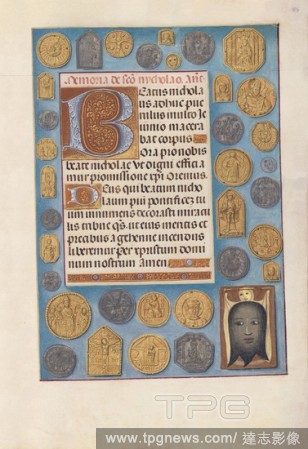 Memoria de sco nycholao. Ant.
Eatus nichola
us adhuc pue
rulus multo Je
iunio macera
bat corpus
Ora pro nobis
beate nicholae Ut digni effica
mur promissione xpi Oremus
Deus qui beatum nicho
laum pium pontificem tu
um innumeris decorasti miracu
lis tribue qs. ut eius meritis et
precibus a gehenne incendiis
liberemur Per xpistum domi
num nostrum Amen
TPG
www.tpgnews.com/達志影像